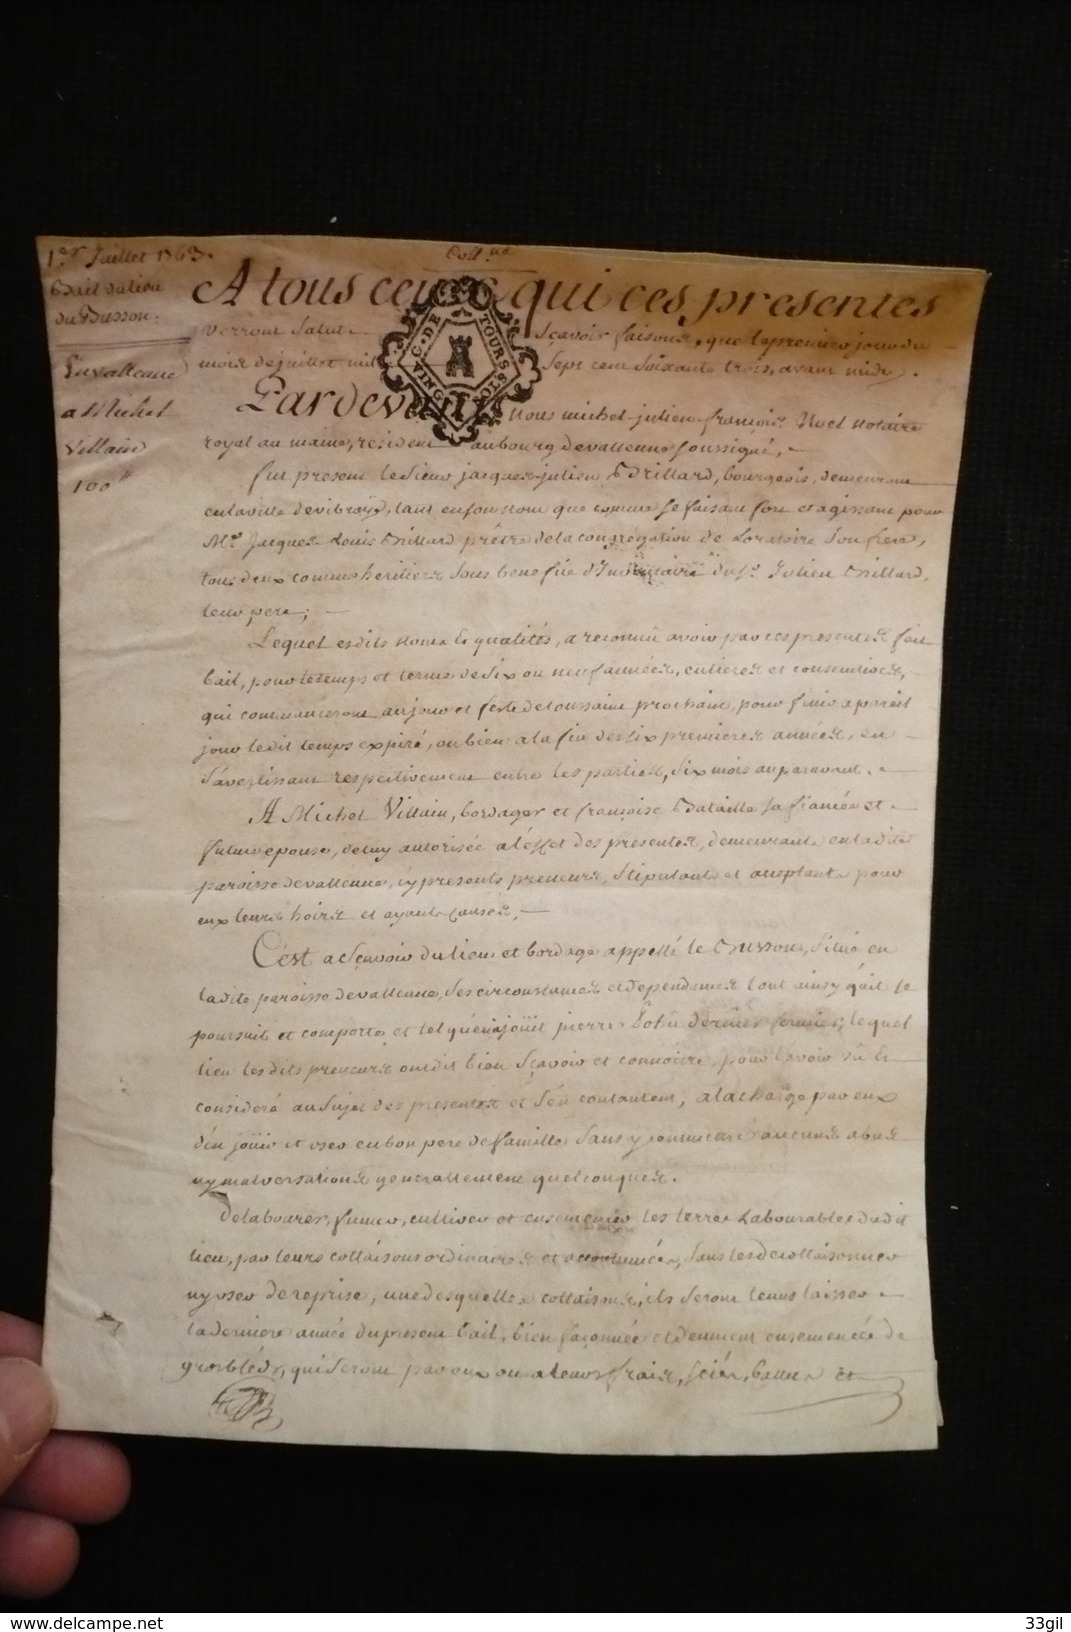 1.er Juillet 1763.
Bail du lieu
du Buisson.
En Vallenne
a Michel
Villain
100 tt
Coll.né
A tous ceux qui ces presentes
verront Salut Sçavoir faisons, que le premier jour du
mois de juillet mil Sept cent Soixante trois, avant midy.
G. DE TOURS
VINGT
Pardevant Nous michel-julien-françois Noel notaire
royal au maine, resident au bourg de vallenne soussigné,
fut present le Sieur jacques-julien Brillard, bourgeois, demeurant
en la ville de vibraÿe, tant en son nom que comme se faisant fort et agissant pour
M.e Jacques Louis Brillard prêtre de la congrégation de Loratoire Son frere,
tous deux comme heritiers Sous benefice d'Inventaire du S.r Julien Brillard,
leur pere;
Lequel esdits noms & qualités, a reconnu avoir par ces presentes fait
bail, pour le temps et terme de Six ou neuf années, entieres et consecutives,
qui commenceront au jour et feste de toussaint prochain, pour finir a pareil
jour ledit temps expiré, ou bien a la fin des six premieres années, en
S'avertissant respectivement entre les parties, Six mois auparavant.
A Michel Villain, bordager et françoise Bataille sa fiancée et
future epouse, de luy autorisée a l'effet des presentes, demeurants en la dite
paroisse de vallenne, cy presents preneurs, Stipulants et acceptants pour
eux leurs hoirs et ayants causes,
C'est a Sçavoir du lieu et bordage appellé le Buisson, Situé en
la dite paroisse de vallenne, Ses circonstances et dependances tout ainsy qu'il se
poursuit et comporte, et tel qu'en joüit pierre dernier fermier, lequel
lieu les dits preneurs ont dit bien Sçavoir et connoitre, pour l'avoir vû &
consideré au Sujet des presentes et S'en contentent, a la charge par eux
d'en joüir et user en bon pere de famille Sans y commettre aucuns abus
ny malversations generallement quelconques.
De labourer, fumer, cultiver et ensemencer les terres Labourables dudit
lieu, par leurs collaisons ordinaires et accoutumées, Sans les decollaisonner
ny user de reprise, une desquelles collaisons, ils Seront tenus laisser
la derniere année du present bail, bien façonnée et duement ensemencée de
gros bleds, qui Seront par eux ou a leurs frais, Sciés, battus et
www.delcampe.net
33gil